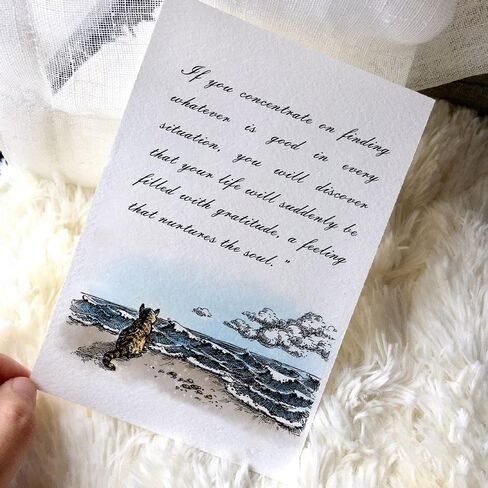 If you concentrate on finding
whatever is good in every
situation, you will discover
that your life will suddenly be
filled with gratitude, a feeling
that nurtures the soul. "